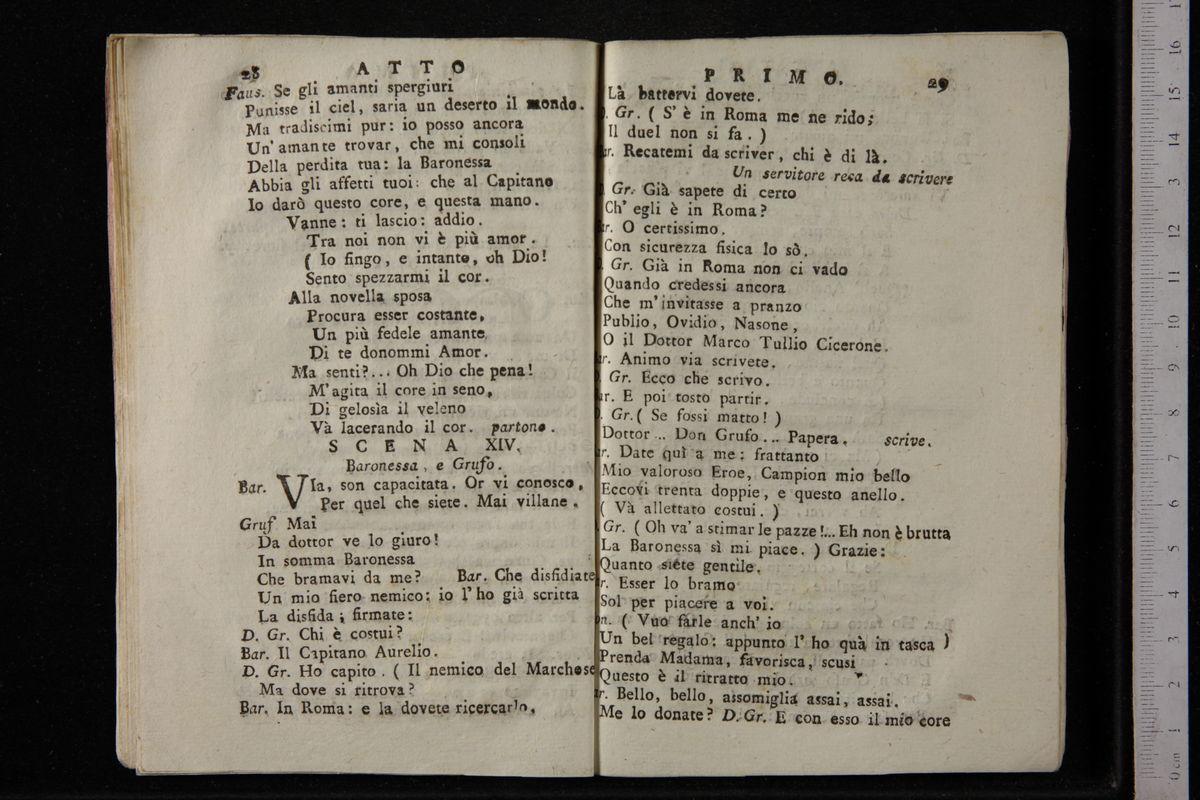 28 ATTO
Faus. Se gli amanti spergiuri
Punisse il ciel, saria un deserto il mondo.
Ma tradiscimi pur: io posso ancora
Un' amante trovar, che mi consoli
Della perdita tua: la Baronessa
Abbia gli affetti tuoi: che al Capitano
Io darò questo core, e questa mano.
Vanne: ti lascio: addio.
Tra noi non vi è più amor.
( Io fingo, e intanto, oh Dio!
Sento spezzarmi il cor.
Alla novella sposa
Procura esser costante,
Un più fedele amante
Di te donommi Amor.
Ma senti?... Oh Dio che pena!
M'agita il core in seno,
Di gelosìa il veleno
Và lacerando il cor. partono.
SCENA XIV.
Baronessa, e Grufo.
Bar. VIa, son capacitata. Or vi conosco,
Per quel che siete. Mai villane.
Gruf Mai
Da dottor ve lo giuro!
In somma Baronessa
Che bramavi da me? Bar. Che disfidiate
Un mio fiero nemico: io l'ho già scritta
La disfida; firmate:
D. Gr. Chi è costui?
Bar. Il Capitano Aurelio.
D. Gr. Ho capito. ( Il nemico del Marchese
Ma dove si ritrova?
Bar. In Roma: e la dovete ricercarlo,
PRIMO. 29
Là battervi dovete.
. Gr. ( S' è in Roma me ne rido;
Il duel non si fa. )
ar. Recatemi da scriver, chi è di là.
Un servitore reca da scrivere
. Gr. Già sapete di certo
Ch' egli è in Roma?
ar. O certissimo.
Con sicurezza fisica lo sò.
. Gr. Già in Roma non ci vado
Quando credessi ancora
Che m'invitasse a pranzo
Publio, Ovidio, Nasone,
O il Dottor Marco Tullio Cicerone.
ar. Animo via scrivete.
. Gr. Ecco che scrivo.
ar. E poi tosto partir.
. Gr. ( Se fossi matto! )
Dottor... Don Grufo... Papera. scrive.
r. Date quì a me: frattanto
Mio valoroso Eroe, Campion mio bello
Eccovi trenta doppie, e questo anello.
( Và allettato costui. )
. Gr. ( Oh va' a stimar le pazze!... Eh non è brutta
La Baronessa sì mi piace. ) Grazie:
Quanto siete gentile.
r. Esser lo bramo
Sol per piacere a voi.
n. ( Vuo farle anch' io
Un bel regalo: appunto l' ho quà in tasca )
Prenda Madama, favorisca, scusi
Questo è il ritratto mio.
r. Bello, bello, assomiglia assai, assai.
Me lo donate? D. Gr. E con esso il mio core